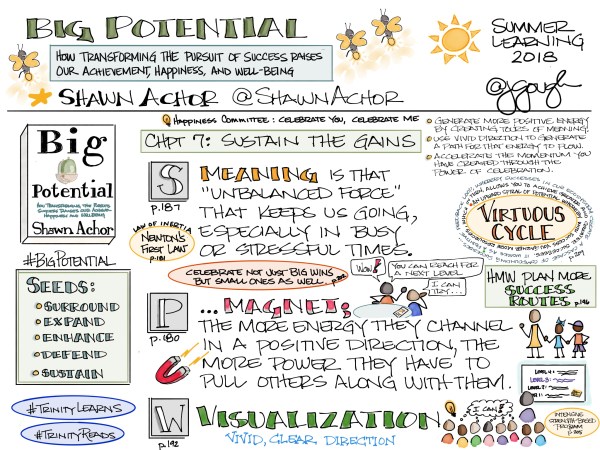 BIG POTENTIAL
HOW TRANSFORMING THE PURSUIT OF SUCCESS RAISES
OUR ACHIEVEMENT, HAPPINESS, AND WELL-BEING
SHAWN ACHOR @SHAWNACHOR
SUMMER
LEARNING
2018
@jgough
HAPPINESS COMMITTEE: CELEBRATE YOU, CELEBRATE ME
CHPT 7: SUSTAIN THE GAINS
GENERATE MORE POSITIVE ENERGY
BY CREATING TOURS OF MEANING.
USE VIVID DIRECTION TO GENERATE
A PATH FOR THAT ENERGY TO FLOW.
ACCELERATE THE MOMENTUM YOU
HAVE CREATED THROUGH THE
POWER OF CELEBRATION.
Big
Potential
HOW TRANSFORMING THE PURSUIT OF
SUCCESS RAISES OUR ACHIEVEMENT,
HAPPINESS AND WELL-BEING
Shawn Achor
#BIGPOTENTIAL
SEEDS:
SURROUND
EXPAND
ENHANCE
DEFEND
SUSTAIN
#TRINITYLEARNS
#TRINITYREADS
S
p.187
MEANING IS THAT
"UNBALANCED FORCE"
THAT KEEPS US GOING,
ESPECIALLY IN BUSY
OR STRESSFUL TIMES.
LAW OF INERTIA
NEWTON'S
FIRST LAW
p.181
CELEBRATE NOT JUST BIG WINS
BUT SMALL ONES AS WELL.
WOW!
YOU CAN REACH FOR
A NEXT LEVEL.
I CAN
TRY...
VIRTUOUS
CYCLE
HMW PLAN MORE
SUCCESS
ROUTES p.196
P
p.180
... MAGNET;
THE MORE ENERGY THEY CHANNEL
IN A POSITIVE DIRECTION, THE
MORE POWER THEY HAVE TO
PULL OTHERS ALONG WITH THEM.
LEVEL 4:
LEVEL 3:
LEVEL 2:
LEVEL 1:
W
p.192
VISUALIZATION
VIVID, CLEAR DIRECTION
I CAN!
STRENGTH-BASED
PROGRAM